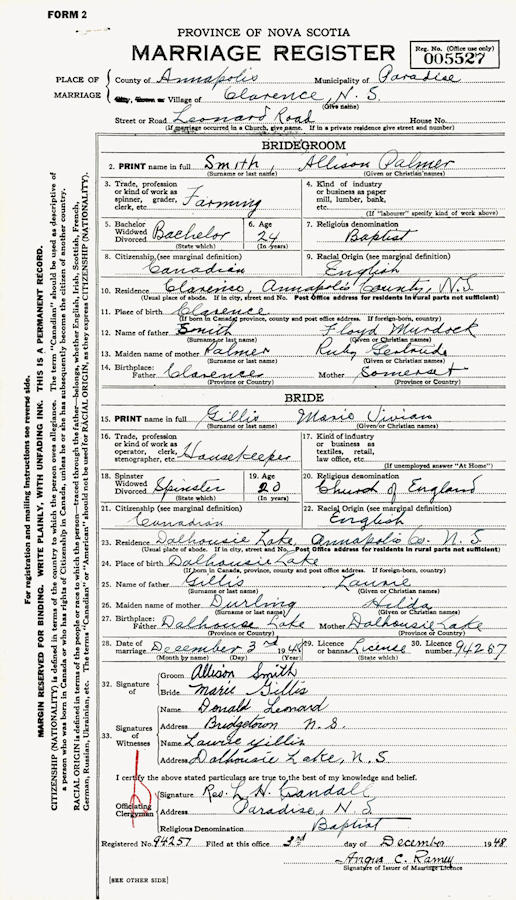 FORM 2
PROVINCE OF NOVA SCOTIA
MARRIAGE REGISTER
Reg. No. (Office use only)
005527
PLACE OF MARRIAGE
County of Annapolis Municipality of Paradise
City, Town or Village of Clarence, N. S.
(Give name)
Street or Road Leonard Road House No.
(If marriage occurred in a Church, give name. If in a private residence give street and number)
BRIDEGROOM
2. PRINT name in full Smith, Allison Palmer
(Surname or last name) (Given or Christian names)
3. Trade, profession or kind of work as spinner, grader, clerk, etc. Farming
4. Kind of industry or business as paper mill, lumber, bank, etc.
(If "labourer" specify kind of work above)
5. Bachelor Widowed Divorced Bachelor (State which)
6. Age 24 (In years)
7. Religious denomination Baptist
8. Citizenship (see marginal definition) Canadian
9. Racial Origin (see marginal definition) English
10. Residence Clarence, Annapolis County, N.S.
(Usual place of abode. If in city, street and No. Post Office address for residents in rural parts not sufficient)
11. Place of birth Clarence
(If born in Canada, province, county and post office address. If foreign-born, country)
12. Name of father Smith Floyd Murdock
(Surname or last name) (Given or Christian names)
13. Maiden name of mother Palmer Ruby Gertrude
(Surname or last name) (Given or Christian names)
14. Birthplace: Father Clarence Mother Somerset
(Province or Country) (Province or Country)
BRIDE
15. PRINT name in full Gillis Marie Vivian
(Surname or last name) (Given or Christian names)
16. Trade, profession or kind of work as operator, clerk, stenographer, etc. Housekeeper
17. Kind of industry or business as textiles, retail, law office, etc.
(If unemployed answer "At Home")
18. Spinster Widowed Divorced Spinster (State which)
19. Age 20 (In years)
20. Religious denomination Church of England
21. Citizenship (see marginal definition) Canadian
22. Racial Origin (see marginal definition) English
23. Residence Dalhousie Lake, Annapolis Co. N. S.
(Usual place of abode. If in city, street and No. Post Office address for residents in rural parts not sufficient)
24. Place of birth Dalhousie Lake
(If born in Canada, province, county and post office address. If foreign-born, country)
25. Name of father Gillis Laurie
(Surname or last name) (Given or Christian names)
26. Maiden name of mother Durling Hilda
(Surname or last name) (Given or Christian names)
27. Birthplace: Father Dalhouse Lake Mother Dalhousie Lake
(Province or Country) (Province or Country)
28. Date of marriage December 3rd 1948
(Month by name) (Day) (Year)
29. Licence or banns License
30. Licence number 94257
32. Signature of
Groom Allison Smith
Bride Marie Gillis
33. Signatures of Witnesses
Name Donald Leonard
Address Bridgetown N. S.
Name Laurie Gillis
Address Dalhousie Lake, N. S.
I certify the above stated particulars are true to the best of my knowledge and belief.
Officiating Clergyman
Signature Rev. L. H. Crandall
Address Paradise, N. S.
Religious Denomination Baptist
Registered No. 94257 Filed at this office 3rd day of December 1948
Angus C. Ramey
Signature of Issuer of Marriage Licence
[SEE OTHER SIDE]
For registration and mailing instructions see reverse side.
MARGIN RESERVED FOR BINDING. WRITE PLAINLY, WITH UNFADING INK. THIS IS A PERMANENT RECORD.
CITIZENSHIP (NATIONALITY) is defined in terms of the country to which the person owes allegiance. The term "Canadian" should be used as descriptive of
a person who was born in Canada or who has rights of Citizenship in Canada, unless he or she has subsequently become the citizen of another country.
RACIAL ORIGIN is defined in terms of the people or race to which the person—traced through the father—belongs, whether English, Irish, Scottish, French,
German, Russian, Ukrainian, etc. The terms "Canadian" or "American" should not be used for RACIAL ORIGIN, as they express CITIZENSHIP (NATIONALITY).